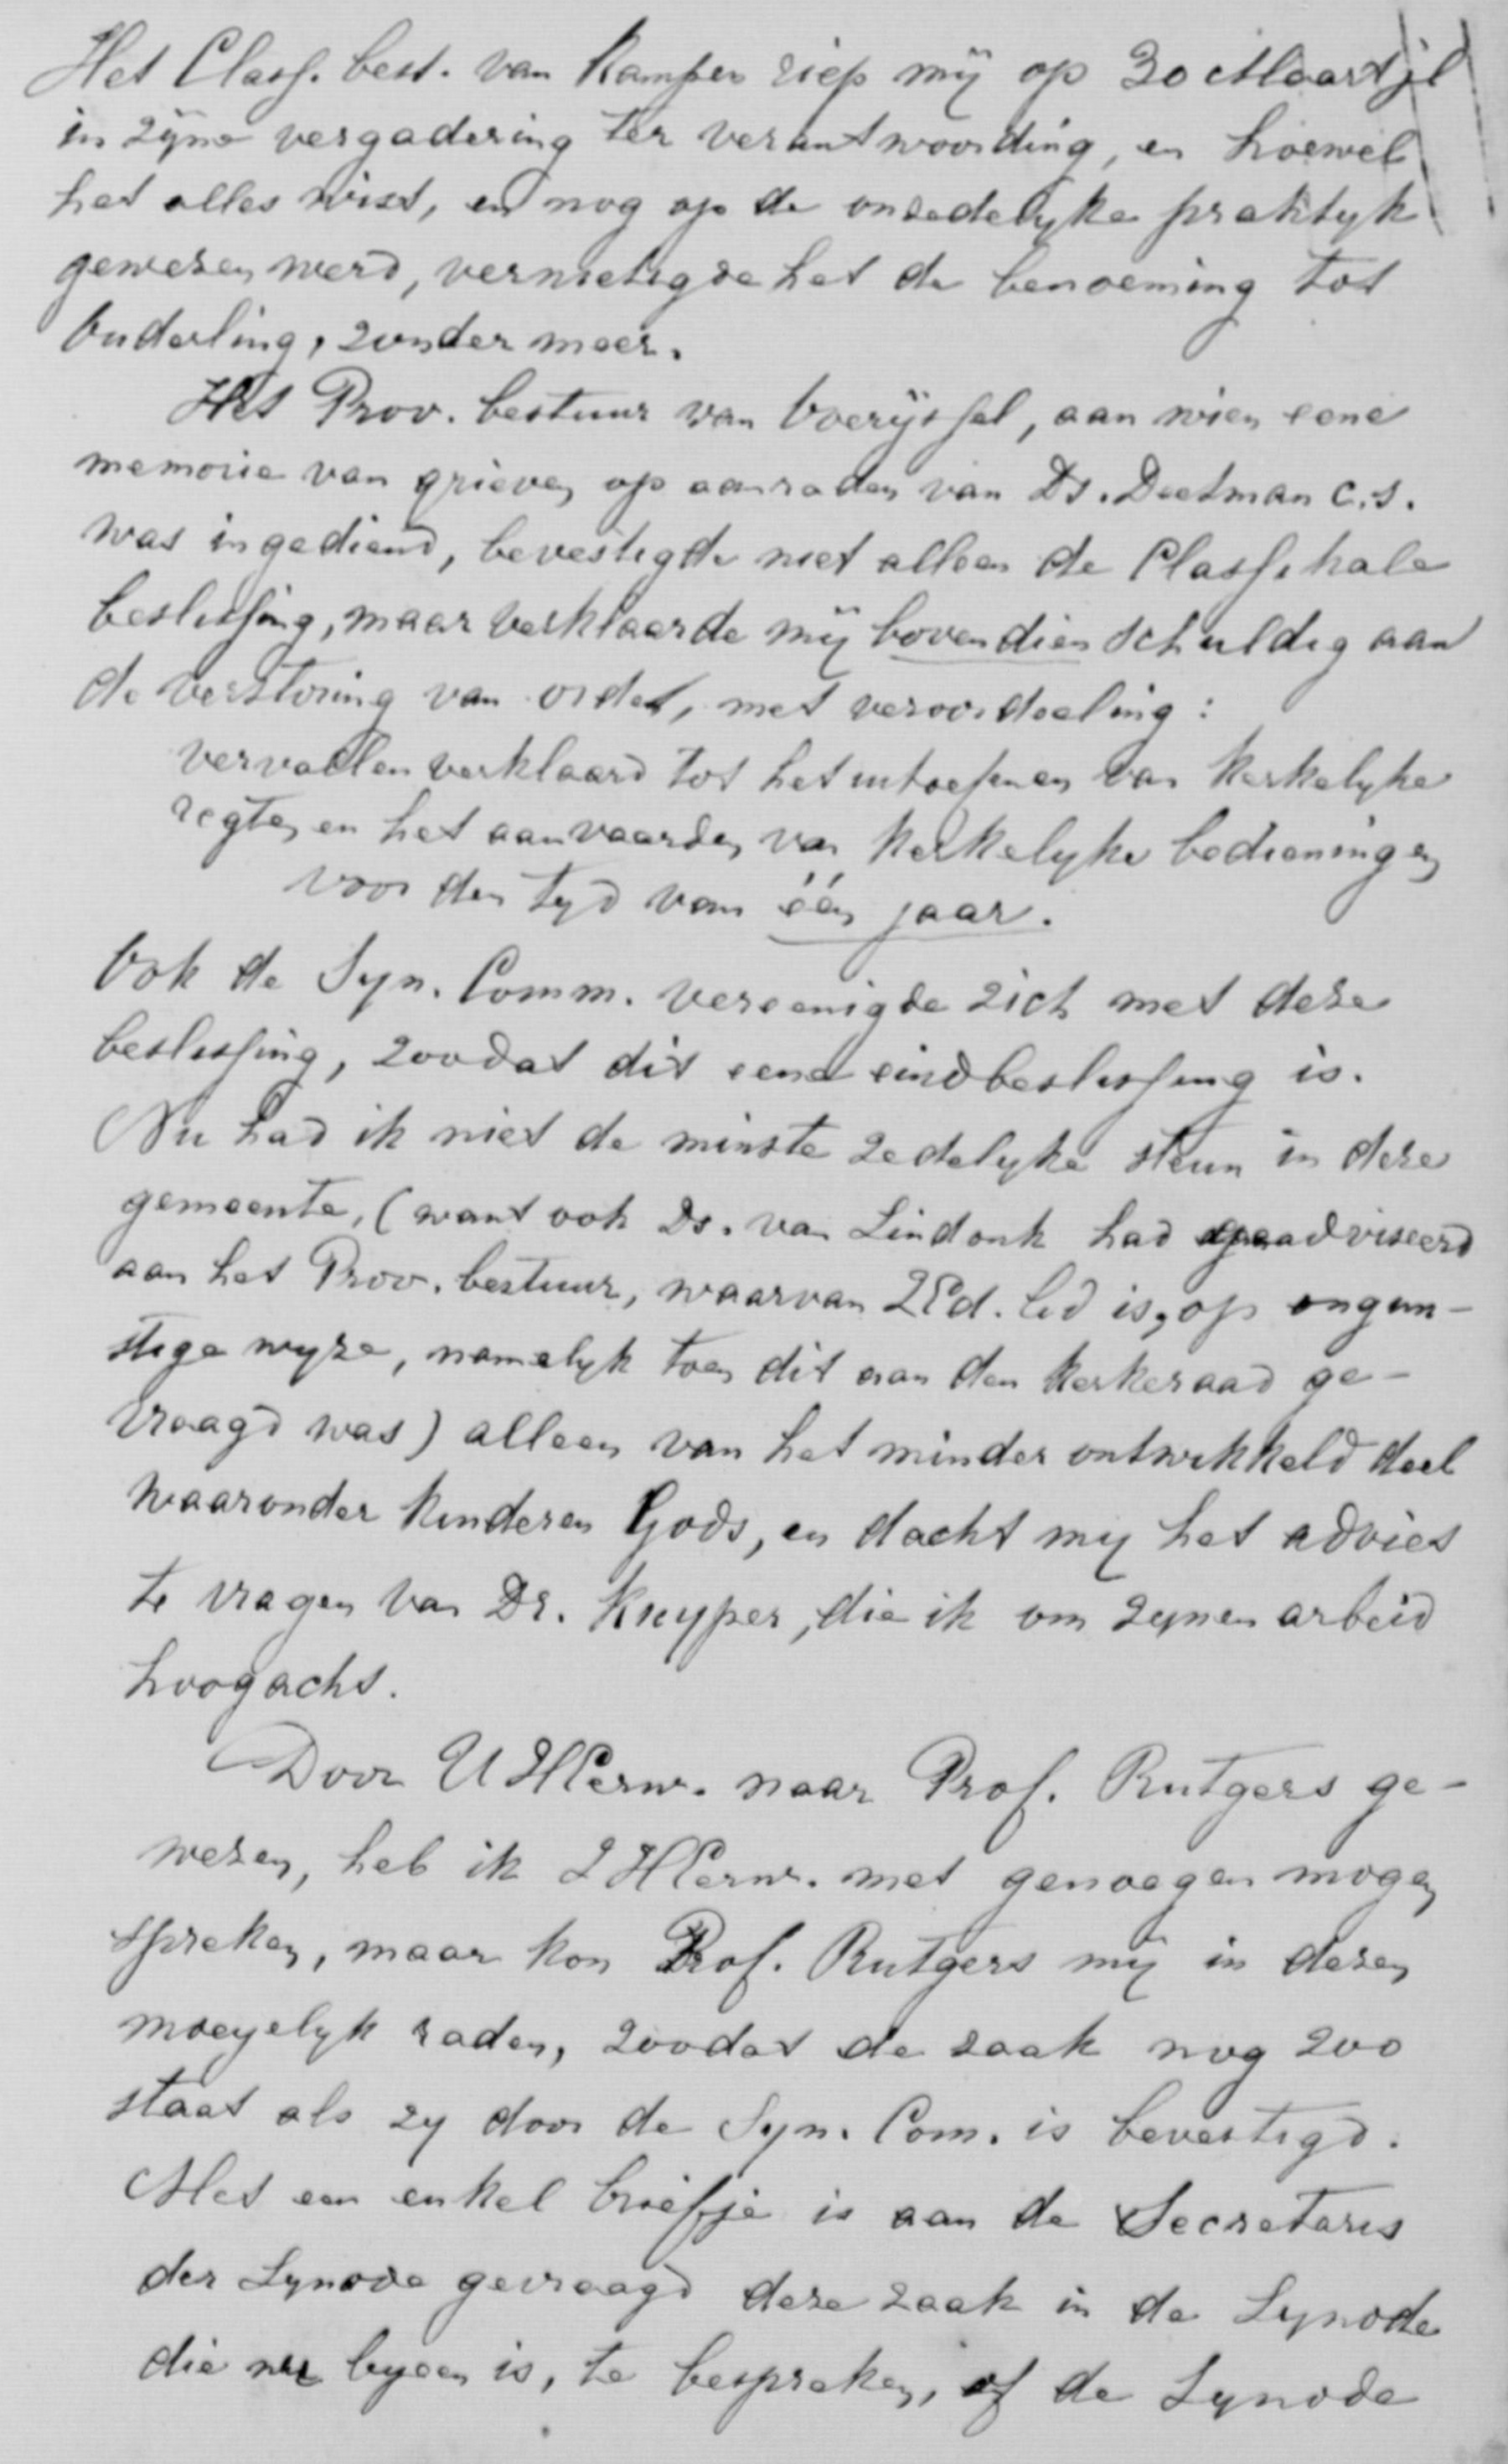 Het Class. best. van Kampen riep mij op 30 Maart jl
in zijne vergadering ter verantwoording, en hoewel
het alles wist, en nog op de onzedelyke praktyk
gewezen werd, vernietigde het de benoeming tot
Ouderling, zonder meer.
Het Prov. bestuur van Overijssel, aan wien eene
memorie van grieven op aanraden van Ds. Deetman c.s.
was ingediend, bevestigde niet alleen de Classikale
beslissing, maar verklaarde mij bovendien schuldig aan
de verstoring van orde, met veroordeeling:
vervallen verklaard tot het uitoefenen van kerkelyke
regten en het aanvaarden van kerkelyke bedieningen
voor den tyd van één jaar.
Ook de Syn. Comm. vereenigde zich met deze
beslissing, zoodat dit eene eindbeslissing is.
Nu had ik niet de minste zedelyke steun in deze
gemeente, (want ook Ds. van Lindonk had geadviseerd
aan het Prov. bestuur, waarvan ZEd. lid is, op ongun-
stige wyze, namelyk toen dit aan den kerkeraad ge-
vraagd was) alleen van het minder ontwikkeld deel
waaronder kinderen Gods, en dacht my het advies
te vragen van Dr. Kuyper, die ik om zynen arbeid
hoogacht.
Door UHEerw. naar Prof. Rutgers ge-
wezen, heb ik ZHEerw. met genoegen mogen
spreken, maar kon Prof. Rutgers mij in dezen
moeyelyk raden, zoodat de zaak nog zoo
staat als zy door de Syn. Com. is bevestigd.
Met een enkel briefje is aan de Secretaris
der Synode gevraagd deze zaak in de Synode
die nu byeen is, te bespreken, of de Synode